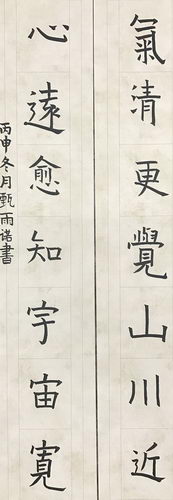 氣清更覺山川近
心遠愈知宇宙寬
丙申冬月甄雨諾書